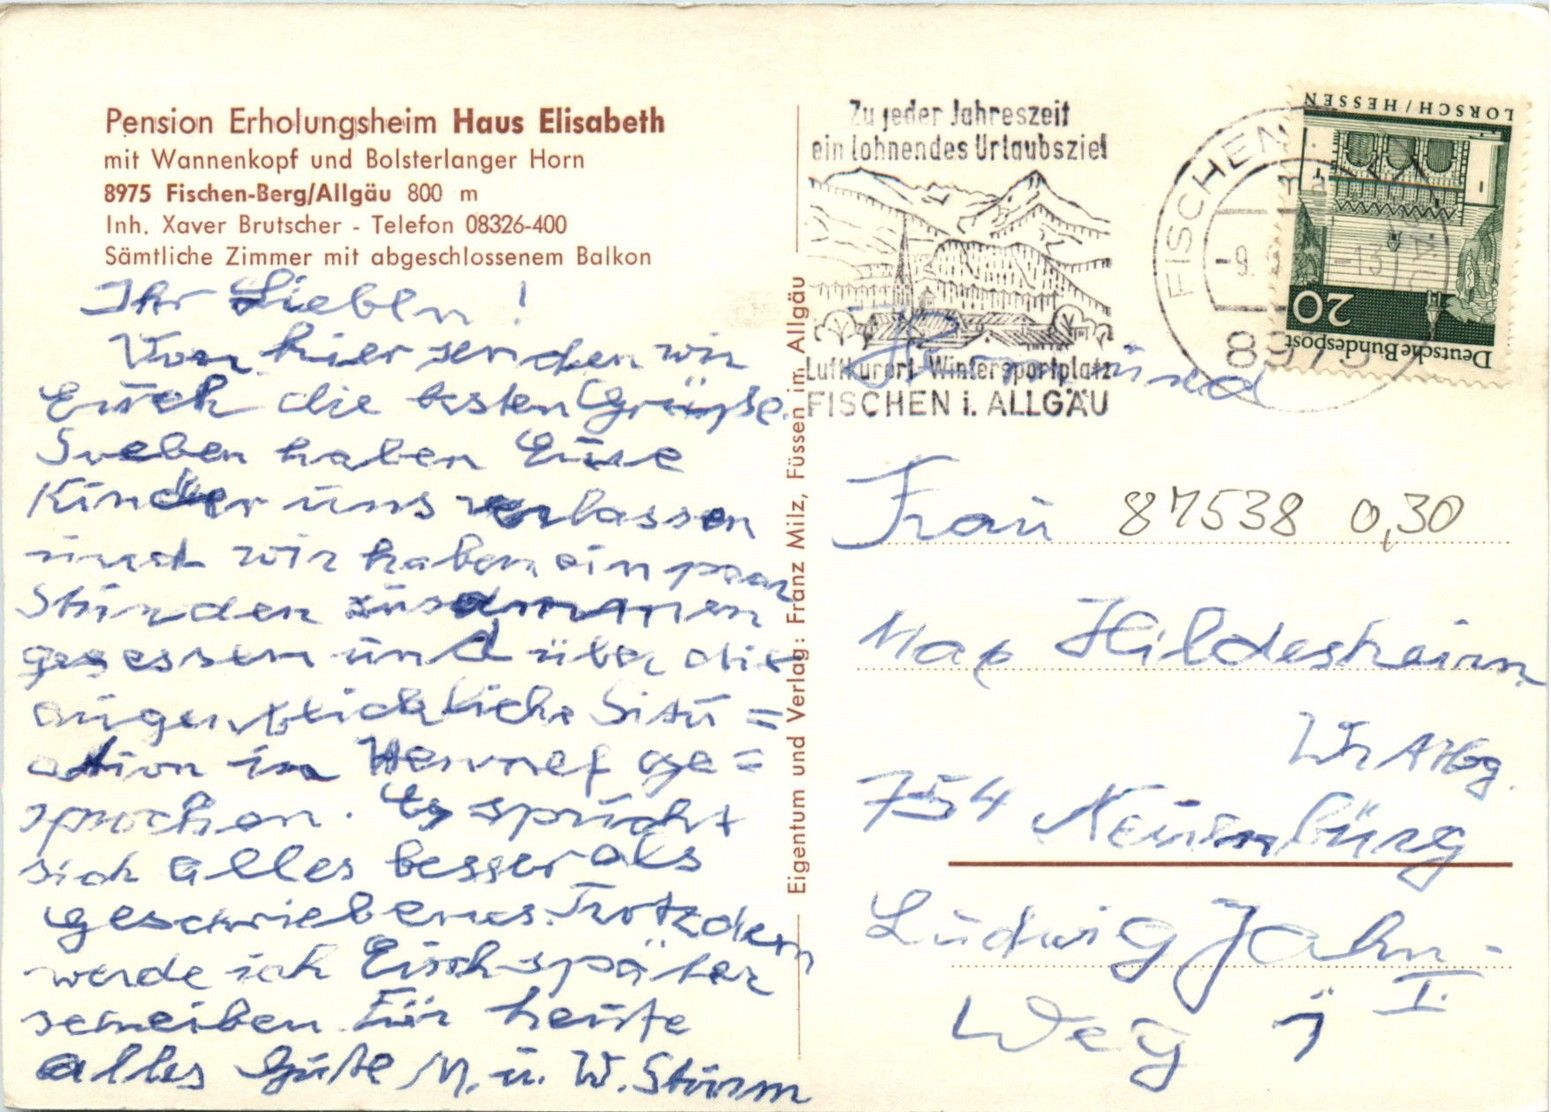 Pension Erholungsheim Haus Elisabeth
mit Wannenkopf und Bolsterlanger Horn
8975 Fischen-Berg/Allgäu 800 m
Inh. Xaver Brutscher - Telefon 08326-400
Sämtliche Zimmer mit abgeschlossenem Balkon
Ihr Lieben!
Von hier senden wir
Euch die besten Grüße.
Soeben haben Eure
Kinder uns verlassen
und wir haben ein paar
Stunden zusammen
gesessen und über die
augenblickliche Situ=
ation in Hennef ge=
sprochen. Es spricht
sich alles besser als
geschriebenes. Trotzdem
werde ich Euch später
schreiben Für heute
alles Gute M. u. W. Sturm
Eigentum und Verlag: Franz Milz, Füssen im Allgäu
Zu jeder Jahreszeit
ein lohnendes Urlaubsziel
Luftkurort-Wintersportplatz
FISCHEN i. ALLGÄU
FISCHEN
-9.
-13
8975
LORSCH/HESSEN
20
Deutsche Bundespost
Herrn und
Frau 87538 0,30
Max Hildesheim
754 Neuenbürg
Ludwig Jahn-
Weg
I.